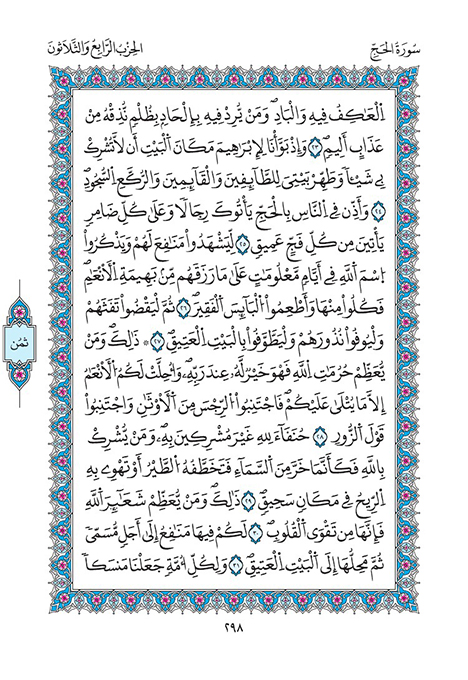 سُورَةُ الحَجِّ
الحِزْبُ الرَّابِعُ وَالثَّلَاثُونَ
اَ۬لْعَٰكِفُ فِيهِ وَالْبَادِۦۖ وَمَنْ يُّرِدْ فِيهِ بِإِلْحَادِۢ بِظُلْمٖ نُّذِقْهُ مِنْ
عَذَابٍ أَلِيمٖۖ ٢٣ وَإِذْ بَوَّأْنَا لِإِبْرَٰهِيمَ مَكَانَ اَ۬لْبَيْتِ أَن لَّا تُشْرِكْ
بِي شَيْـٔاٗ وَطَهِّرْ بَيْتِيَ لِلطَّآئِفِينَ وَالْقَآئِمِينَ وَالرُّكَّعِ اِ۬لسُّجُودِۖ
٢٤ وَأَذِّن فِي اِ۬لنَّاسِ بِالْحَجِّ يَأْتُوكَ رِجَالاٗ وَعَلَىٰ كُلِّ ضَامِرٖ
يَأْتِينَ مِن كُلِّ فَجٍّ عَمِيقٖ ٢٥ لِّيَشْهَدُواْ مَنَٰفِعَ لَهُمْ وَيَذْكُرُواْ
اُ۪سْمَ اَ۬للَّهِ فِي أَيَّامٖ مَّعْلُومَٰتٍ عَلَىٰ مَا رَزَقَهُم مِّنۢ بَهِيمَةِ اِ۬لْأَنْعَٰمِۖ
فَكُلُواْ مِنْهَا وَأَطْعِمُواْ اُ۬لْبَآئِسَ اَ۬لْفَقِيرَۖ ٢٦ ثُمَّ لْيَقْضُواْ تَفَثَهُمْ
وَلْيُوفُواْ نُذُورَهُمْ وَلْيَطَّوَّفُواْ بِالْبَيْتِ اِ۬لْعَتِيقِۖ ٢٧ ۞ ذَٰلِكَۖ وَمَنْ
يُّعَظِّمْ حُرُمَٰتِ اِ۬للَّهِ فَهُوَ خَيْرٞ لَّهُۥ عِندَ رَبِّهِۦۖ وَأُحِلَّتْ لَكُمُ اُ۬لْأَنْعَٰمُ
إِلَّا مَا يُتْلَىٰ عَلَيْكُمْۖ فَاجْتَنِبُواْ اُ۬لرِّجْسَ مِنَ اَ۬لْأَوْثَٰنِۖ وَاجْتَنِبُواْ
قَوْلَ اَ۬لزُّورِ ٢٨ حُنَفَآءَ لِلهِ غَيْرَ مُشْرِكِينَ بِهِۦۖ وَمَنْ يُّشْرِكْ
بِاللَّهِ فَكَأَنَّمَا خَرَّ مِنَ اَ۬لسَّمَآءِ فَتَخَطَّفُهُ اُ۬لطَّيْرُ أَوْ تَهْوِي بِهِ
اِ۬لرِّيحُ فِي مَكَانٖ سَحِيقٖۖ ٢٩ ذَٰلِكَۖ وَمَنْ يُّعَظِّمْ شَعَٰٓئِرَ اَ۬للَّهِ
فَإِنَّهَا مِن تَقْوَى اَ۬لْقُلُوبِۖ ٣٠ لَكُمْ فِيهَا مَنَٰفِعُ إِلَىٰ أَجَلٖ مُّسَمّىٗ
ثُمَّ مَحِلُّهَا إِلَى اَ۬لْبَيْتِ اِ۬لْعَتِيقِۖ ٣١ وَلِكُلِّ أُمَّةٖ جَعَلْنَا مَنسَكاٗ
ثُمُن
٢٩٨